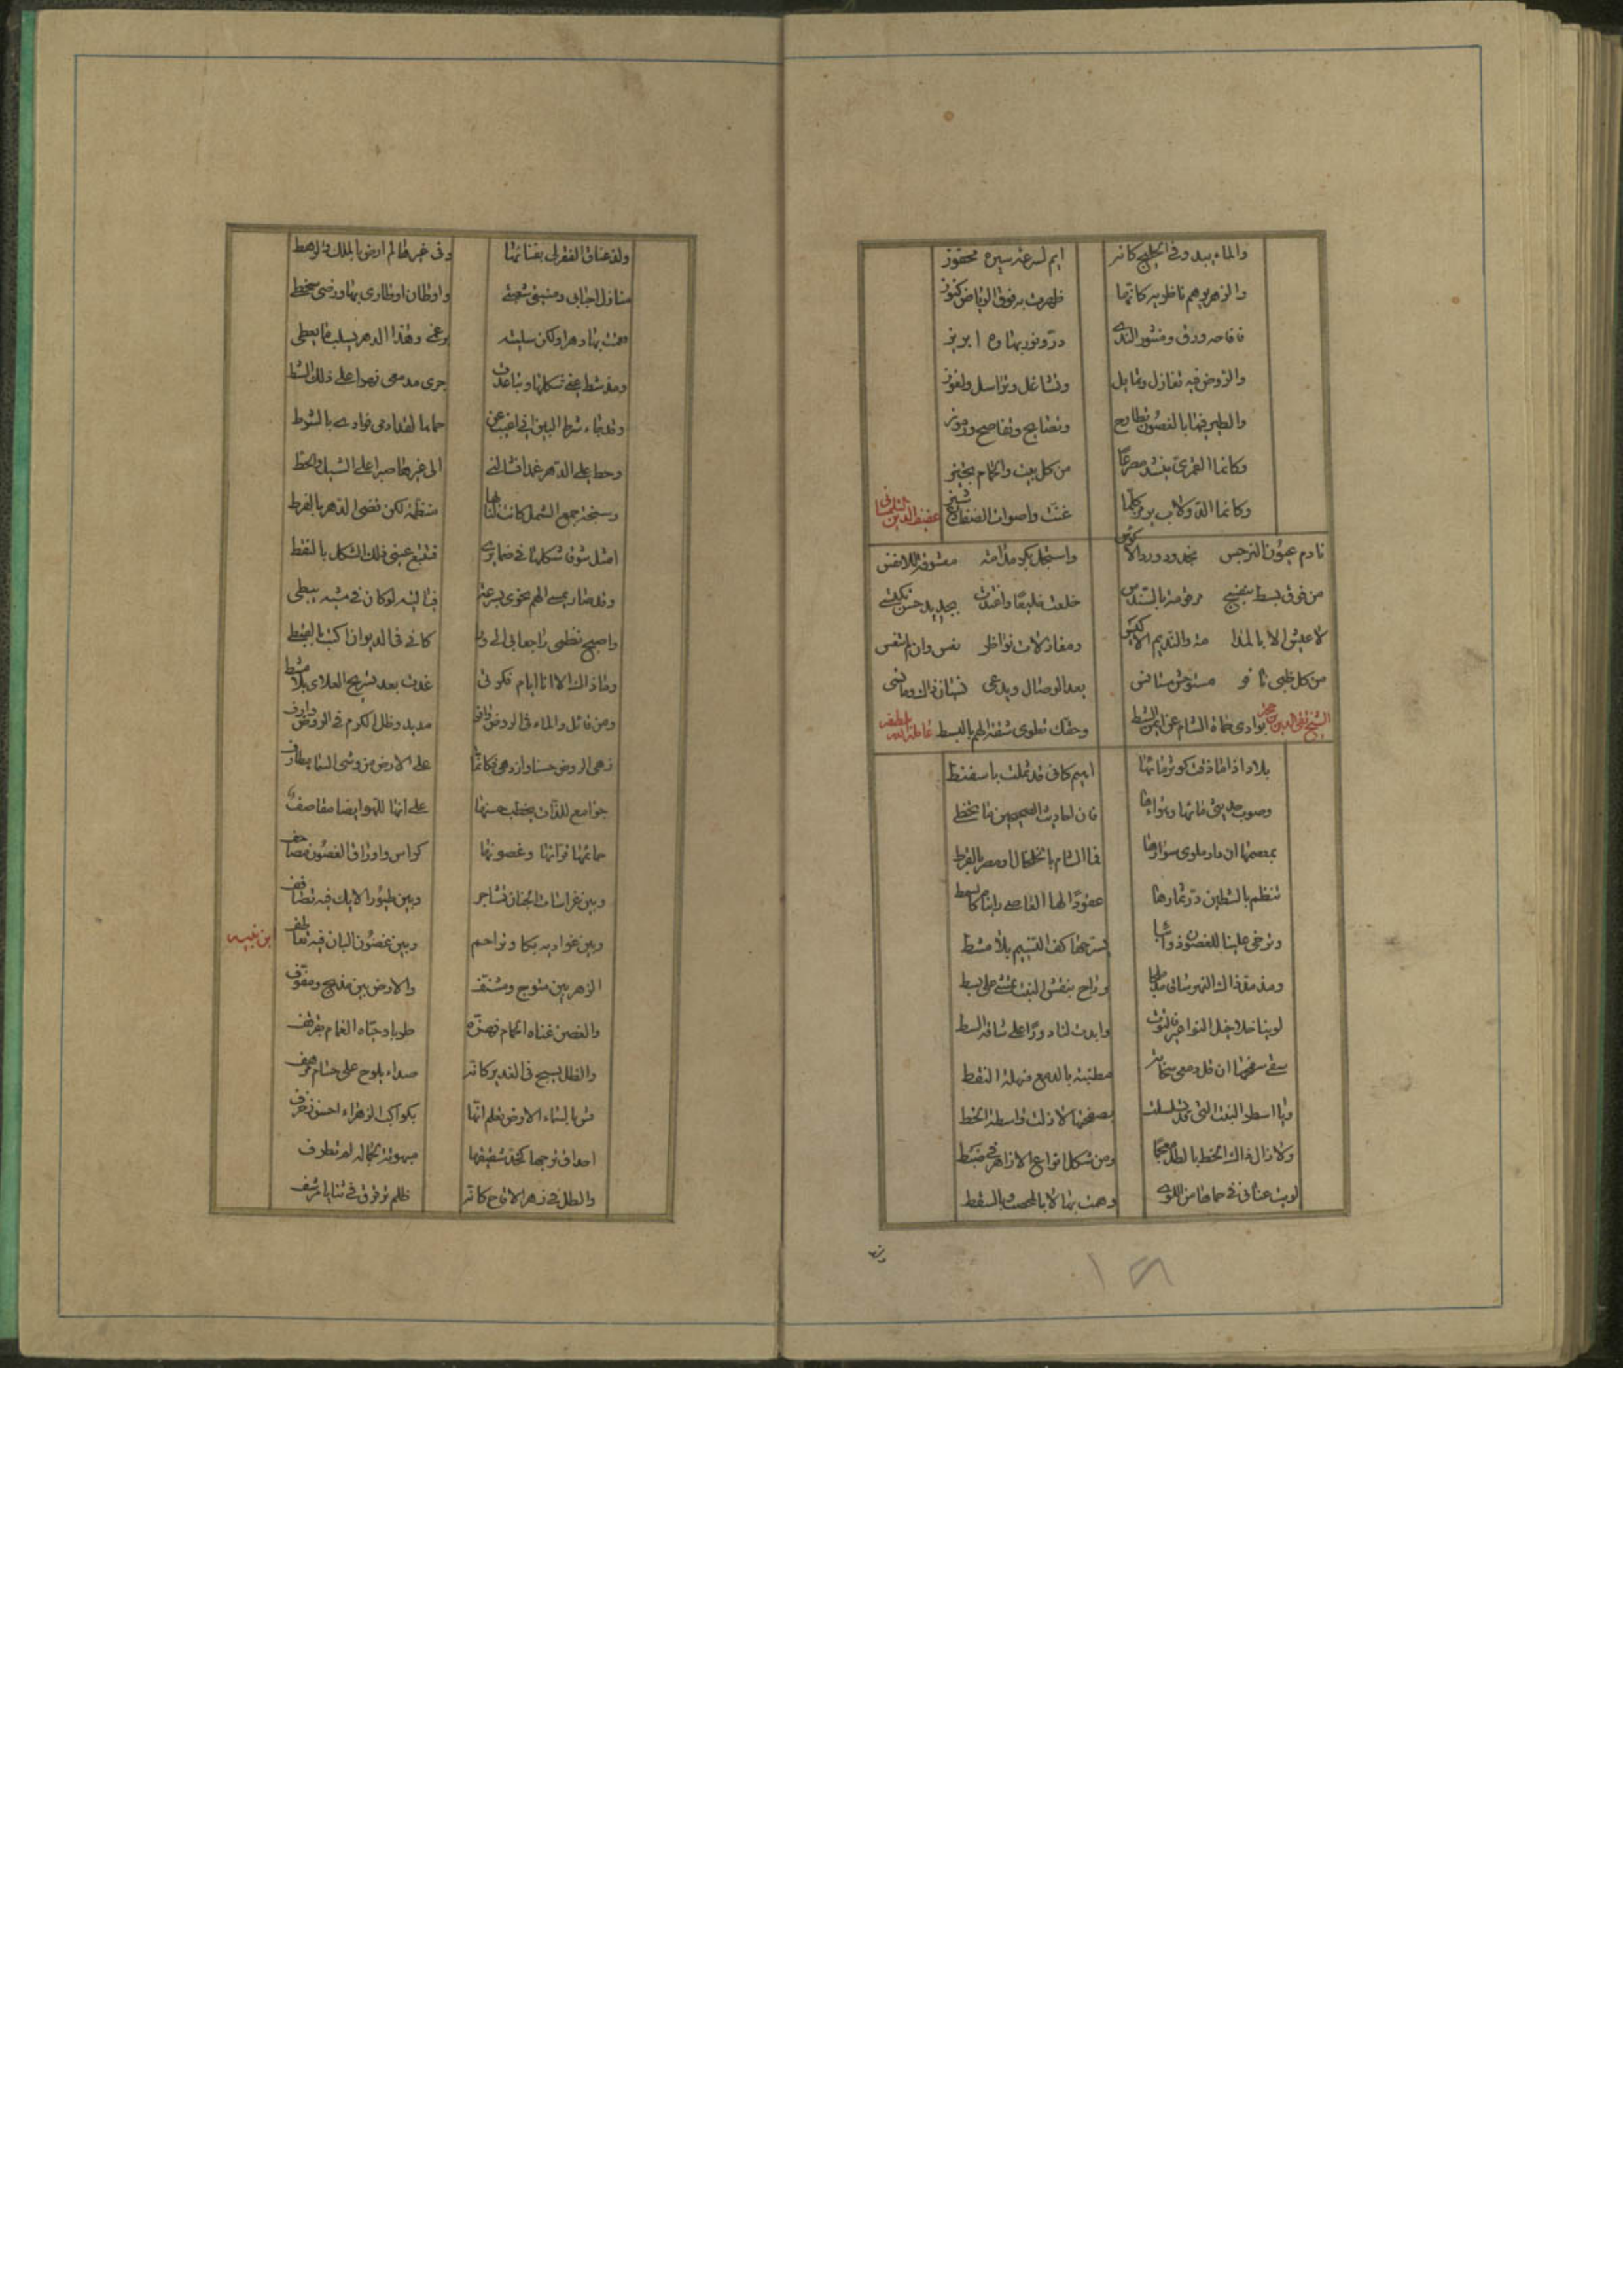 والماء يبدو في الخليج كانه ايم لسرعة سيره محفوز
والزهر يوهم ناظريه كانما ظهرت به فوق الرياض كنوز
فاقاحه ورق ومنثور الندى در ونور بهاره ابريز
والروض فيه تغازل وتمايل وتشاغل وتراسل ولغوز
والطير فيها بالغصون تطارح وتصايح وتفاصح ورموز
وكانما القمرى ينشد مصرعا من كل بيت والحمام يجيز
وكانما الدولاب يزمر كلما غنت واصوات الضفادع شيز عفيف الدين التلمسانى
نادم عيون النرجس بخدود ورد الاكؤس واستجل بكر مدامة معشوقة للانفس
من فوق بسط بنفسج مرقومة بالسندس خلعت خليعا واغتدت بجديد حسن تكتسى
لا عيش الا بالمدامة والنديم الاكيس ومغازلات نواظر نعس وان لم تنعس
من كل ظبى نافر مستوحش مستانس بعد الوصال ويدعى نسيان ذاك وما نسى
الشيخ تقى الدين حجة بوادى حماة الشام عن ايمن الشط وحقك تطوى شقة الهم بالبسط
بلاد اذا ما ذقت كوثر مائها اهيم كانى قد ثملت باسفنط
وصوب حديثى مائها وهوائها فان احاديث الصحيحين ما تخطى
بمعصمها ان دار ملوى سوارها فما الشام بالخلخال او مصر بالقرط
تنظم بالشطين در ثمارها عقودا لها العاصى راينا كالسمط
وترخى علينا للغصون ذوائبا يسرحها كف النسيم بلا مشط
ومذ مد ذاك النهر ساقا مدملجا وراح بنقش النبت يمشى على بسط
لوينا خلاخيل النواعير فالتوت وابدت لنا دورا على ساقه السبط
سقى سفحها ان قل دمعى سحابة مطنبة بالدمع منهلة النقط
ويا اسطر النبت التى قد تسلسلت بصفحتها لا زلت واسطة الخط
ولا زال ذاك الخط بالطل معجما ومن شكل انواع الازاهر فى ضبط
لويت عنانى فى حماها عن اللوى وهمت بها لا بالمحصب والسقط
ولذ عناق الفقر لى بفنائها وفى غيرها لم ارض بالملك والرهط
منازل احبابى ومنبت شعبتى واوطان اوطارى بها ورضى سخطى
نعمت بها دهرا ولكن سلبته برغمى وهذا الدهر يسلب ما يعطى
ومذ شط عنى شكلها وتباعدت جرى مدمعى نهرا على ذلك الشط
وقد جاء شرط البين انى اغيب عن حماها لقد ادمى فؤادى بالشرط
وحط على الدهر عمدا وشالنى الى غيرها صبرا على الشيل والحط
وسبحة جمع الشمل كانت لنا بها منظمة لكن قضى الدهر بالفرط
امثل شوقا شكلها فى ضمايرى فتتبع عينى ذلك الشكل بالنقط
وقد صار يمسى الهم نحوى بسرعة فيا ليته لو كان فى مشيه يبطى
واصبح نظمى راجعا بى الى ورا كانى فى الديوان اكتب بالقبطى
وما ذاك الا ان ايام فكرتى غدت بعد تسريح العلاى بلا مشط
ومن قائل والماء فى الروض دافق مديد وظل الكرم فى الروض وارف
زهى الروض حسنا وازدهى فكانما على الارض من وشى السما مطارف
جوامع للذات يخطب حسنها على انها للهو ايضا مقاصف
حمائمها قرائها وغصونها كراس واوراق الغصون مصاحف
وبين غراسات الجنان تشاجر وبين طيور الايك فيه تضاعف
وبين غواديه بكا وتراحم وبين غصون البان فيه تعاطف ابن نبيه
الزهر بين متوج ومشنف والارض بين مدبج ومفوف
والغصن غناه الحمام فهزه طربا وحياه الغمام بقرقف
والظل يسبح فى الغدير كانه صداء يلوح على حسام مرهف
قس بالسماء الارض تعلم انها بكواكب الزهراء احسن زخرف
احداق نرجسها لخد شقيقها مبهوتة بجماله لم تطرف
والطل فى زهر الاقاح كانه ظلم ترقرق فى ثنايا مرشف
وقد
١٢٨